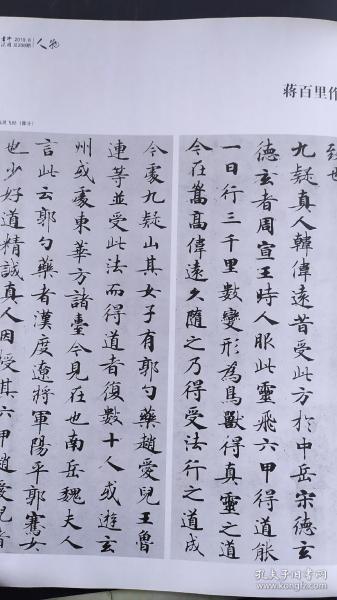 中国书法 2015.6 总266期 人物
蒋百里作
灵飞经（部分）
九疑真人韓偉遠昔受此方於中岳宋德玄
德玄者周宣王時人服此靈飛六甲得道能
一日行三千里數變形為鳥獸得真靈之道
今在嵩高偉遠久隨之乃得受法行之道成
今處九疑山其女子有郭勺藥趙愛兒王魯
連等並受此法而得道者復數十人或遊玄
州或處東華方諸臺今見在也南岳魏夫人
言此云郭勺藥者漢度遼將軍陽平郭騫女
也少好道精誠真人因授其六甲趙愛兒者
孔夫子旧书网
kongfz.com